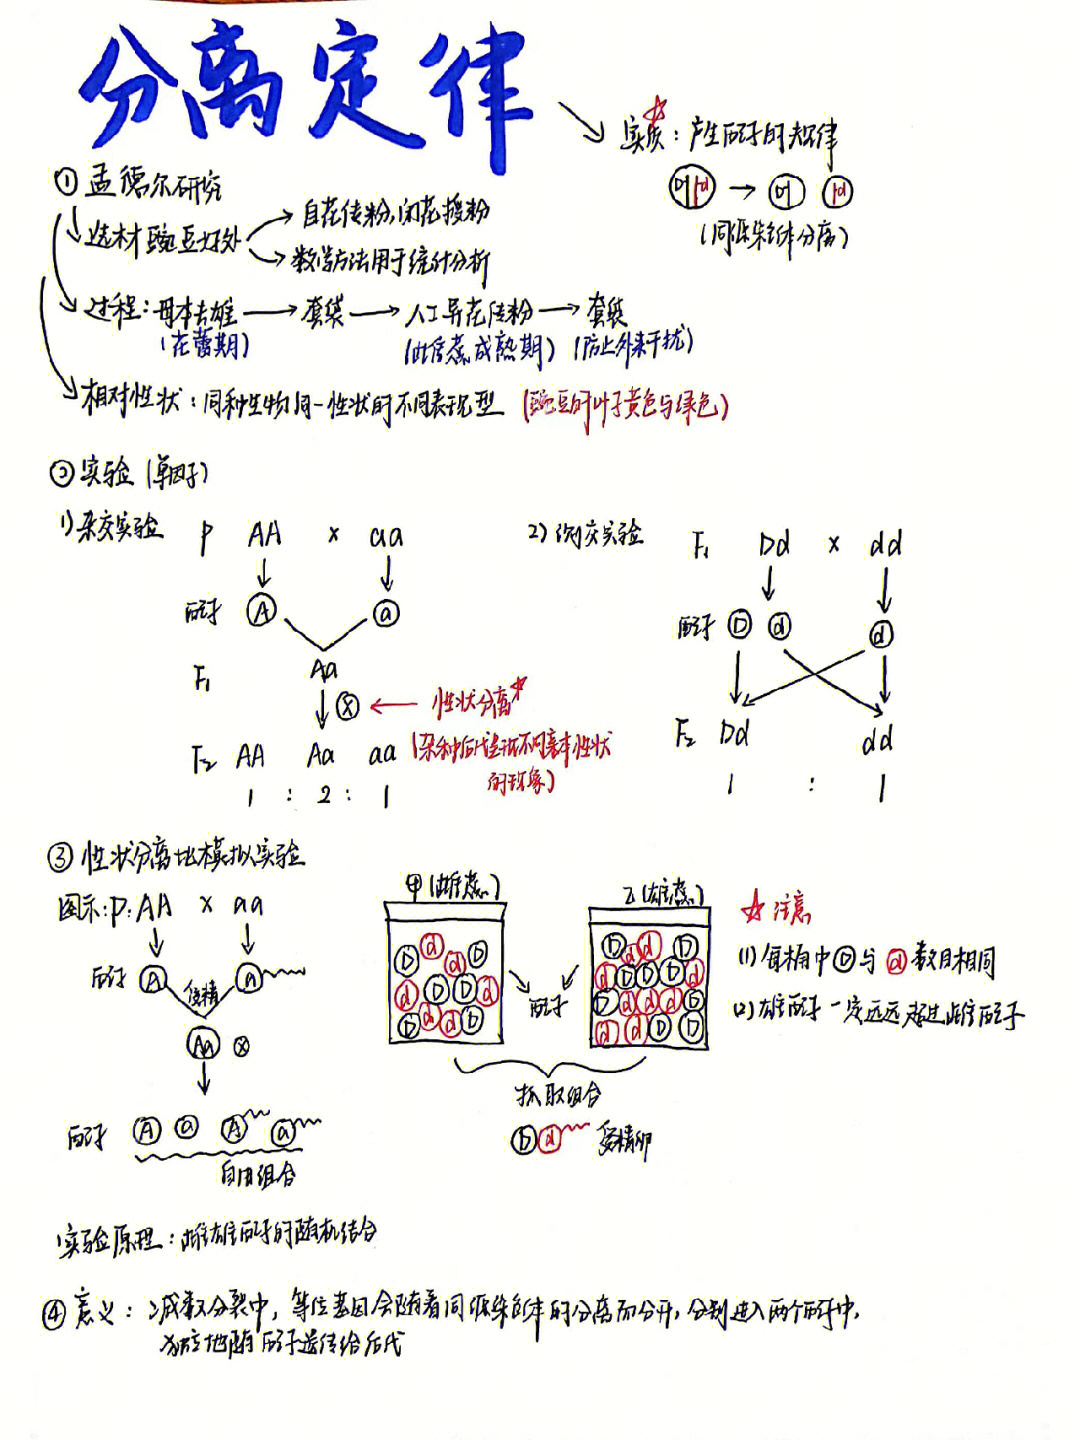 分离定律
实质：产生配子的规律
D d → D d
(同源染色体分离)
① 孟德尔研究
选材豌豆好处
自花传粉,闭花授粉
数学方法用于统计分析
过程：母本去雄 → 套袋 → 人工异花传粉 → 套袋
(花蕾期) (雌蕊成熟期) (防止外来干扰)
相对性状：同种生物同一性状的不同表现型 (豌豆的叶子黄色与绿色)
② 实验 (单因子)
1) 杂交实验
P AA × aa
配子 A a
F₁ Aa
⊗ ← 性状分离
(杂种后代呈现不同亲本性状
的现象)
F₂ AA Aa aa
1 : 2 : 1
2) 测交实验
F₁ Dd × dd
配子 D d d
F₂ Dd dd
1 : 1
③ 性状分离比模拟实验
图示:P: AA × aa
配子 A a
受精
Aa ⊗
配子 A a A a
自由组合
甲(雌蕊) 乙(雄蕊)
D d D d D D d d D d d D
D d D d D D D d D d d d D d d D D
配子
抓取组合
D d 受精卵
☆ 注意
(1) 每桶中 D 与 d 数目相同
(2) 雄配子一定远远超过雌配子
实验原理：雌雄配子的随机结合
④ 意义：减数分裂中，等位基因会随着同源染色体的分离而分开，分别进入两个配子中，
独立地随配子遗传给后代